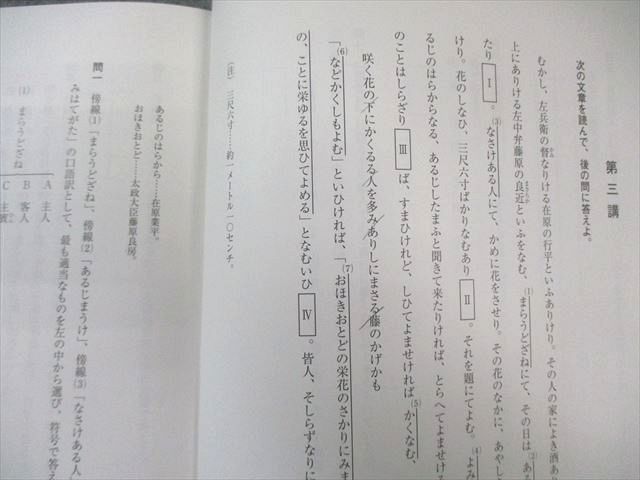 第三講
次の文章を読んで、後の問に答えよ。
むかし、左兵衛の督なりける在原の行平といふありけり。その人の家によき酒あり
上にありける左中弁藤原の良近といふをなむ、(1)まらうどざねにて、その日は(2)ある
たり Ⅰ 。(3)なさけある人にて、かめに花をさせり。その花のなかに、あやし
けり。花のしなひ、三尺六寸ばかりなむあり Ⅱ 。それを題にてよむ。(4)よみ
るじのはらからなる、あるじしたまふと聞きて来たりければ、とらへてよませける
のことはしらざり Ⅲ ば、すまひけれど、しひてよませければ(5)かくなむ、
咲く花の下にかくるる人を多みありしにまさる藤のかげかも
(6)「などかくしもよむ」といひければ、「(7)おほきおとどの栄花のさかりにみま
の、ことに栄ゆるを思ひてよめる」となむいひ Ⅳ 。皆人、そしらずなりに
(注) 三尺六寸……約一メートル一〇センチ。
あるじのはらから……在原業平。
おほきおとど……太政大臣藤原良房。
問一 傍線(1)「まらうどざね」、傍線(2)「あるじまうけ」、傍線(3)「なさけある人
みはてがた」の口語訳として、最も適当なものを左の中から選び、符号で答え
(1) まらうどざね
A 主人
B 客人
C 主賓